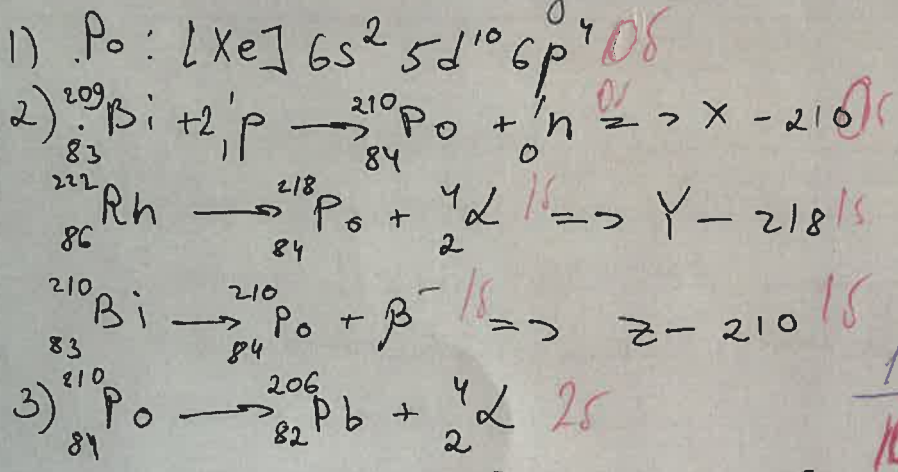 1) Po : [Xe] 6s² 5d¹⁰ 6p⁴ 0б
2) ²⁰⁹₈₃Bi + 2¹₁p → ²¹⁰₈₄Po + ¹₀n 0б => X - 210 0б
²²²₈₆Rh → ²¹⁸₈₄Po + ⁴₂α 1б => Y - 218 1б
²¹⁰₈₃Bi → ²¹⁰₈₄Po + β⁻ 1б => Z - 210 1б
3) ²¹⁰₈₄Po → ²⁰⁶₈₂Pb + ⁴₂α 2б